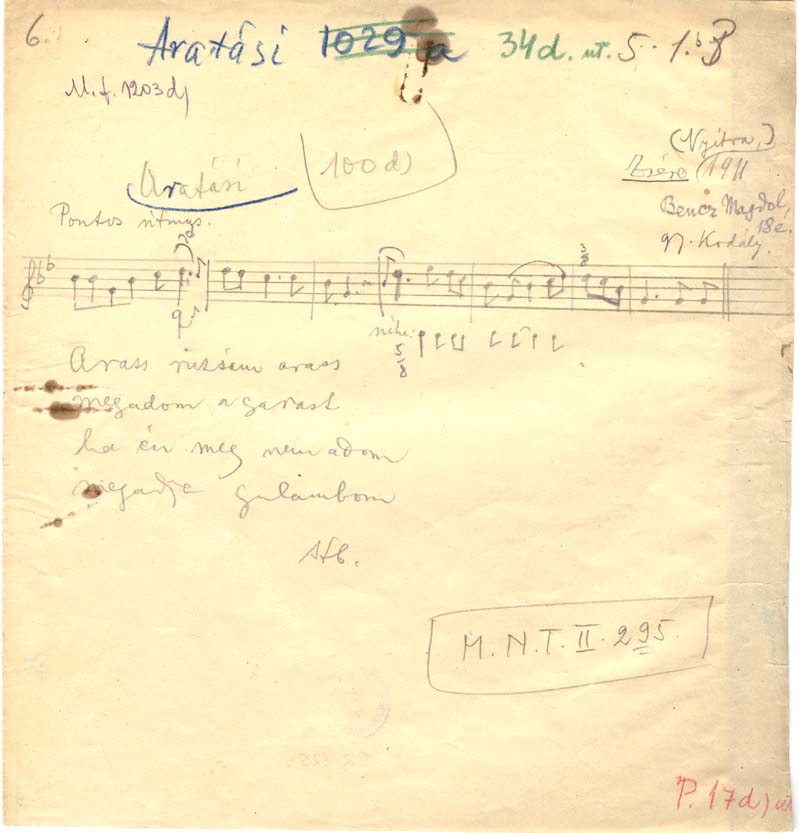 6.
Aratási 1029 a 34d. ut. 5. 1. b
M.f. 1203 d)
Aratási 100 d)
(Nyitra,)
Zsére 1911
Bencz Magdol,
18 é.
gy. Kodály.
Pontos ritmus.
néha:
5
8
Arass rúzsám arass
megadom a garast
ha én meg nem adom
megadja gulambom
stb.
M.N.T. II. 295.
P. 17d) ut